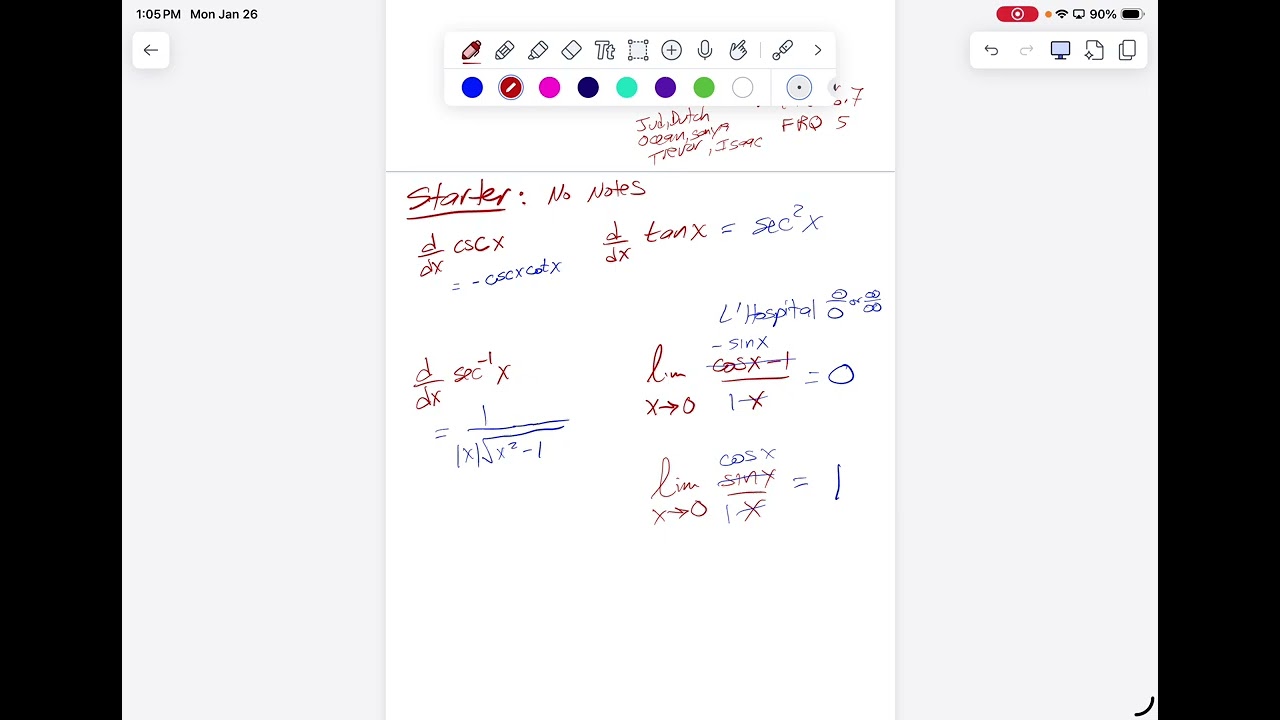 1:05 PM Mon Jan 26
90%
Tt
Jud, Dutch
Ocean, Sanya
Trevor, Isaac
,7
FRQ 5
Starter: No Notes
d/dx csc x
= - csc x cot x
d/dx tan x = sec² x
L'Hospital 0/0 or ∞/∞
d/dx sec⁻¹ x
= 1 / |x|√x² - 1
- sin x
lim x→0 cos x - 1 / x = 0
1
cos x
lim x→0 sin x / x = 1
1